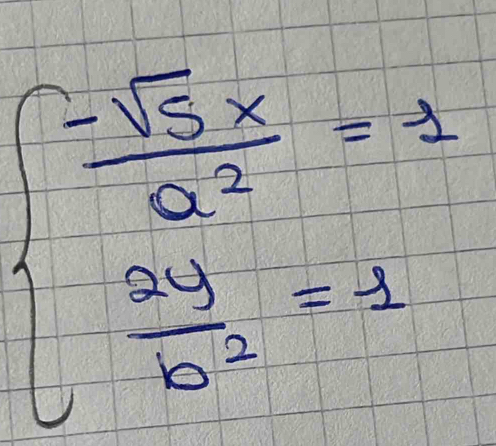 -√5 x / a² = 1
2y / b² = 1